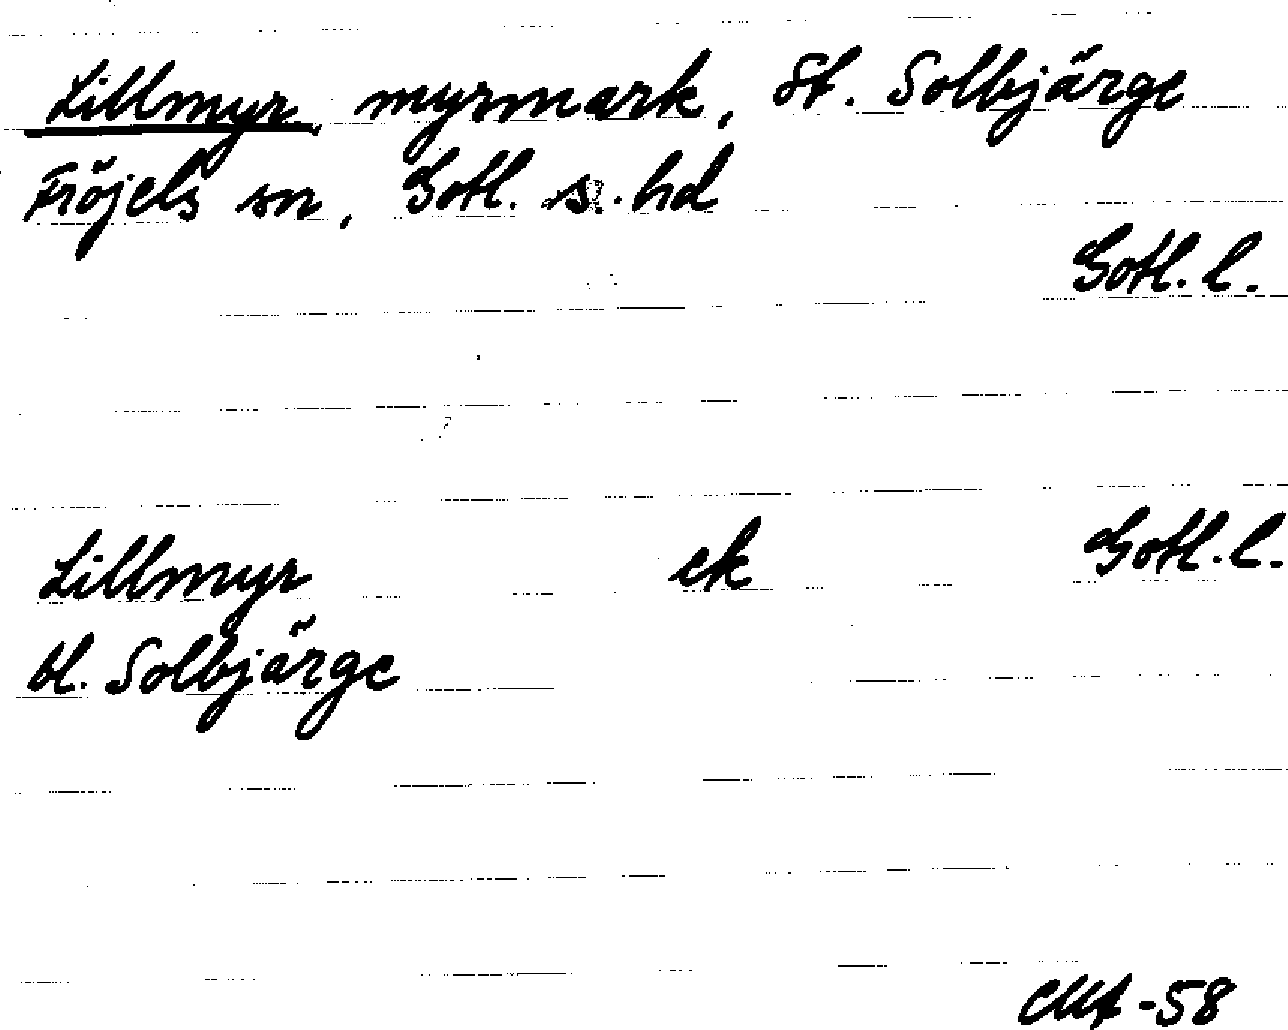 Lillmyr, myrmark, St. Solbjärge
Fröjels sn, Gotl. s. hd
Gotl. l.
Lillmyr ek Gotl. l.
bl. Solbjärge
-58